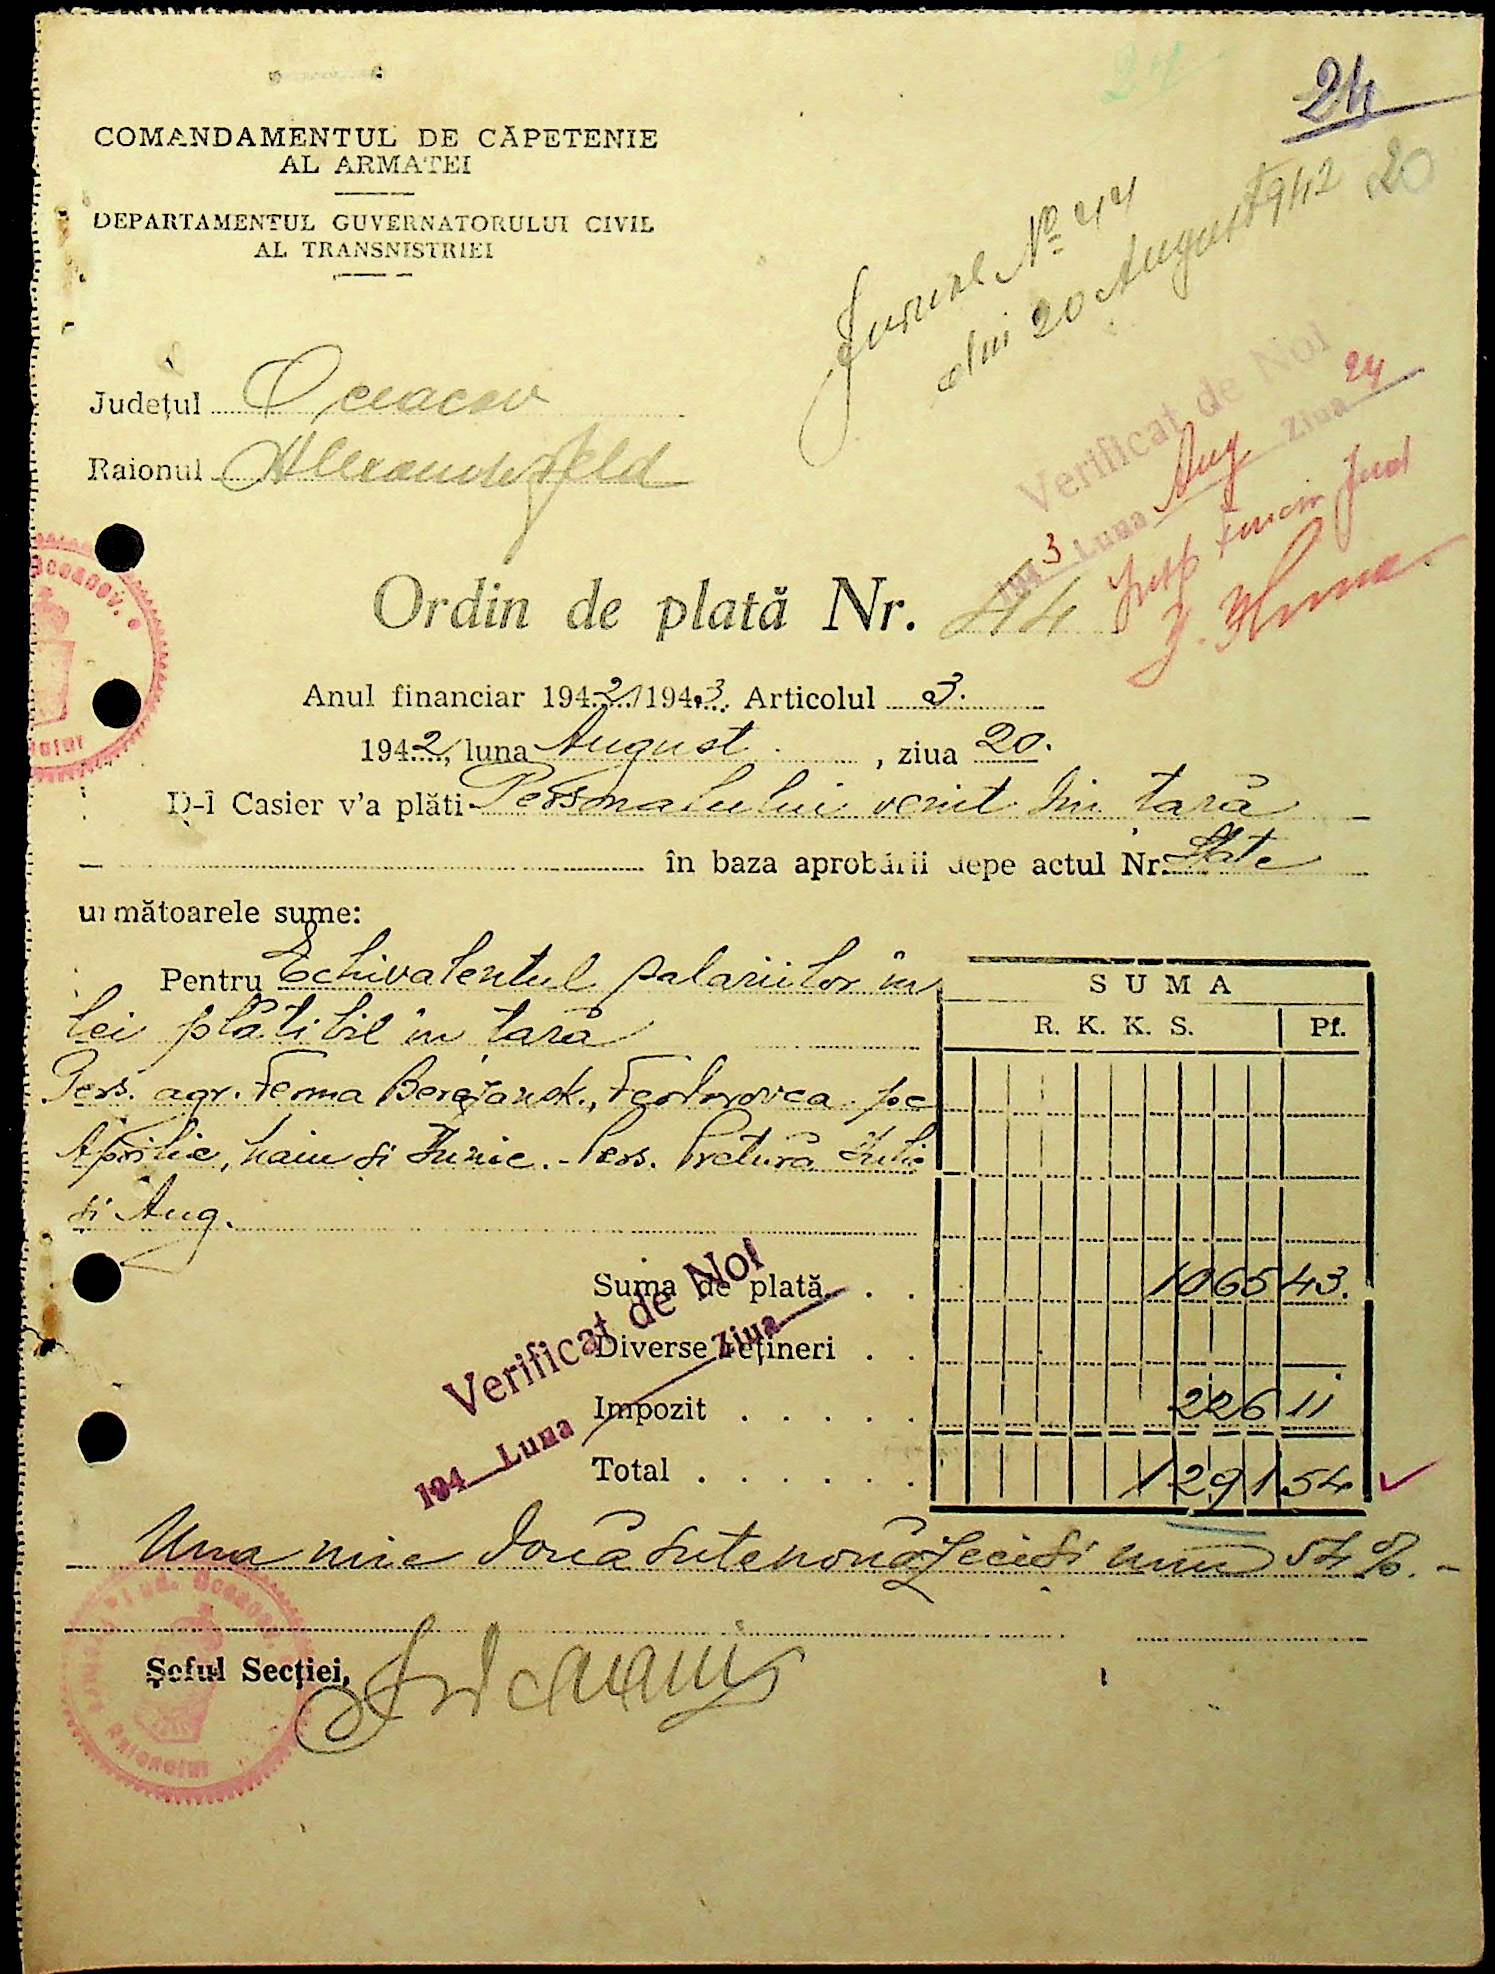 24
24
20
COMANDAMENTUL DE CĂPETENIE
AL ARMATEI
DEPARTAMENTUL GUVERNATORULUI CIVIL
AL TRANSNISTRIEI
Jurnal No 44
din 20 August 1942
Județul Oceacov
Raionul Alexanderfeld
Verificat de Noi
1943 Luna Aug Ziua 24
Ordin de plată Nr. 44
Anul financiar 1942/1943. Articolul 3.
1942, luna August , ziua 20.
D-l Casier v'a plăti Personalului venit din țară
în baza aprobării depe actul Nr. State
următoarele sume:
Pentru Echivalentul salariilor în
lei plătibil în țară
Pers. agr. Ferma Berezansk., pe
Aprilie, Maiu și Iunie. Pers. Pretură Iulie
și Aug.
SUMA
R. K. K. S. Pf.
Suma de plată . . 1065 43.
Diverse rețineri . .
Impozit . . . . . 226 11
Total . . . . . . 1291 54
Verificat de Noi
194 Luna Ziua
Una mie două sute nouăzeci și unu 54 %.-
Șeful Secției,